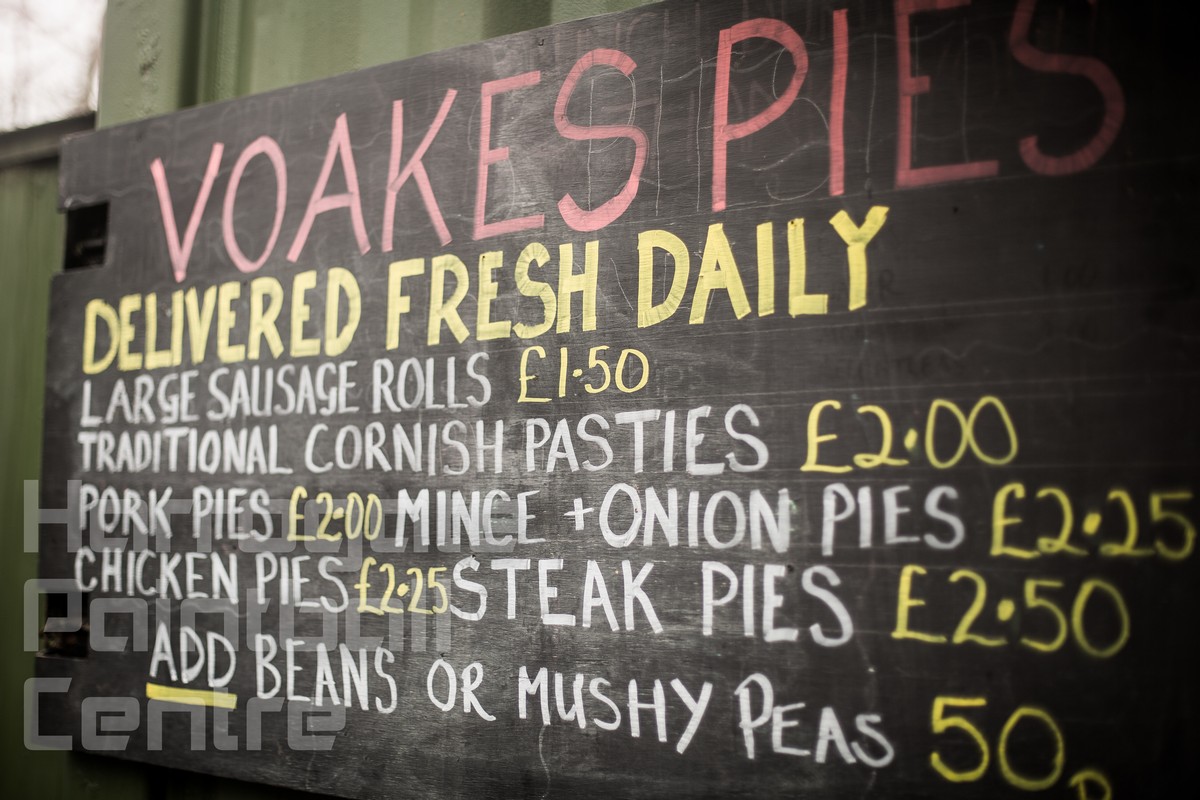 VOAKES PIES
DELIVERED FRESH DAILY
LARGE SAUSAGE ROLLS £1·50
TRADITIONAL CORNISH PASTIES £2·00
PORK PIES £2·00 MINCE + ONION PIES £2·25
CHICKEN PIES £2·25 STEAK PIES £2·50
ADD BEANS OR MUSHY PEAS 50p
Harrogate
Paintball
Centre